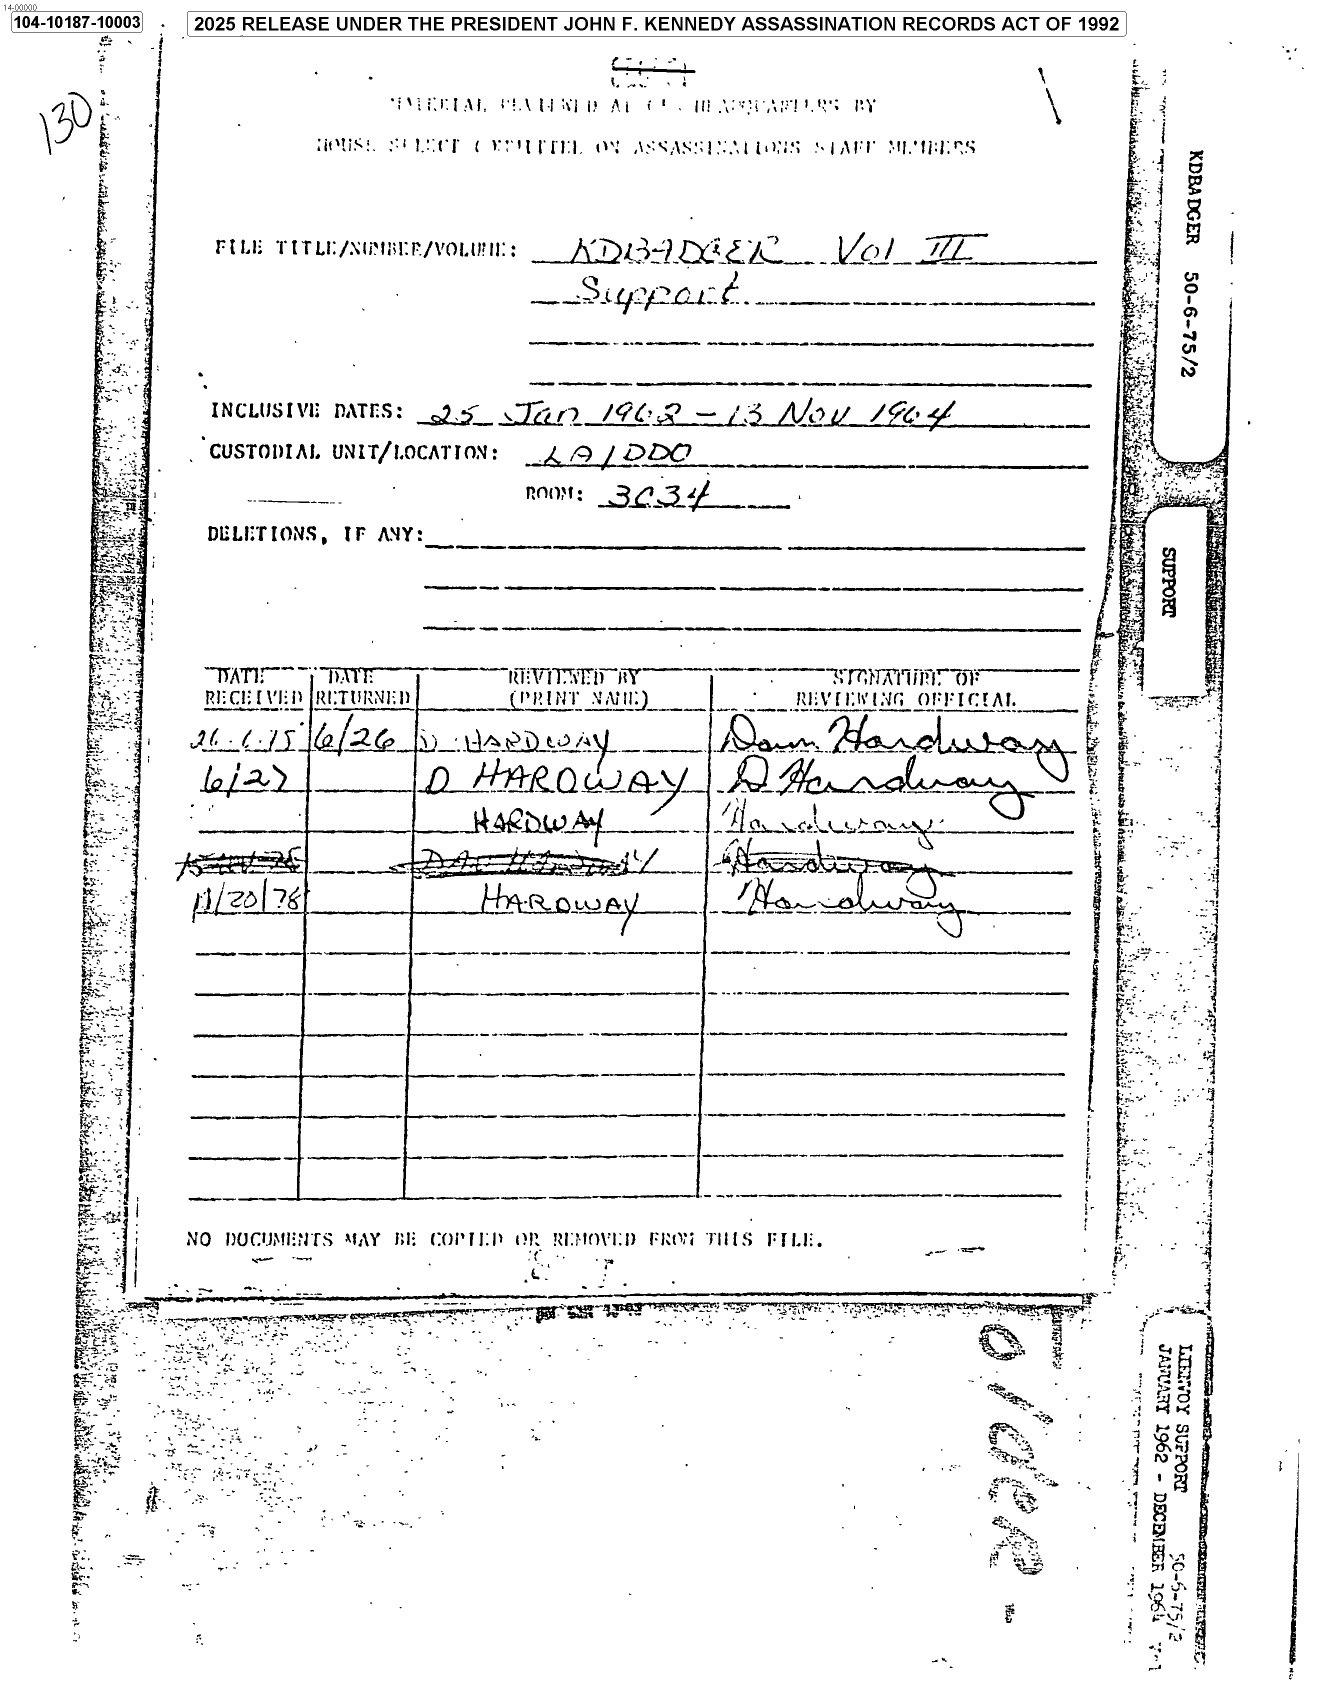 14-00000
104-10187-10003
2025 RELEASE UNDER THE PRESIDENT JOHN F. KENNEDY ASSASSINATION RECORDS ACT OF 1992
130
MATERIAL REVIEWED AT CIA HEADQUARTERS BY
HOUSE SELECT COMMITTEE ON ASSASSINATIONS STAFF MEMBERS
FILE TITLE/NUMBER/VOLUME: KDBADGER Vol III
Support
INCLUSIVE DATES: 25 Jan 1962 - 13 Nov 1964
CUSTODIAL UNIT/LOCATION: LA/DDO
ROOM: 3C34
DELETIONS, IF ANY:
DATE RECEIVED DATE RETURNED REVIEWED BY (PRINT NAME) SIGNATURE OF REVIEWING OFFICIAL
6/26 D. HARDWAY Dan Hardway
6/27 D HARDWAY D Hardway
HARDWAY Hardway
Hardway
11/20/78 HARDWAY Hardway
NO DOCUMENTS MAY BE COPIED OR REMOVED FROM THIS FILE.
KDBADGER 50-6-75/2
SUPPORT
LIENVOY SUPPORT 50-6-75/2
JANUARY 1962 - DECEMBER 1964